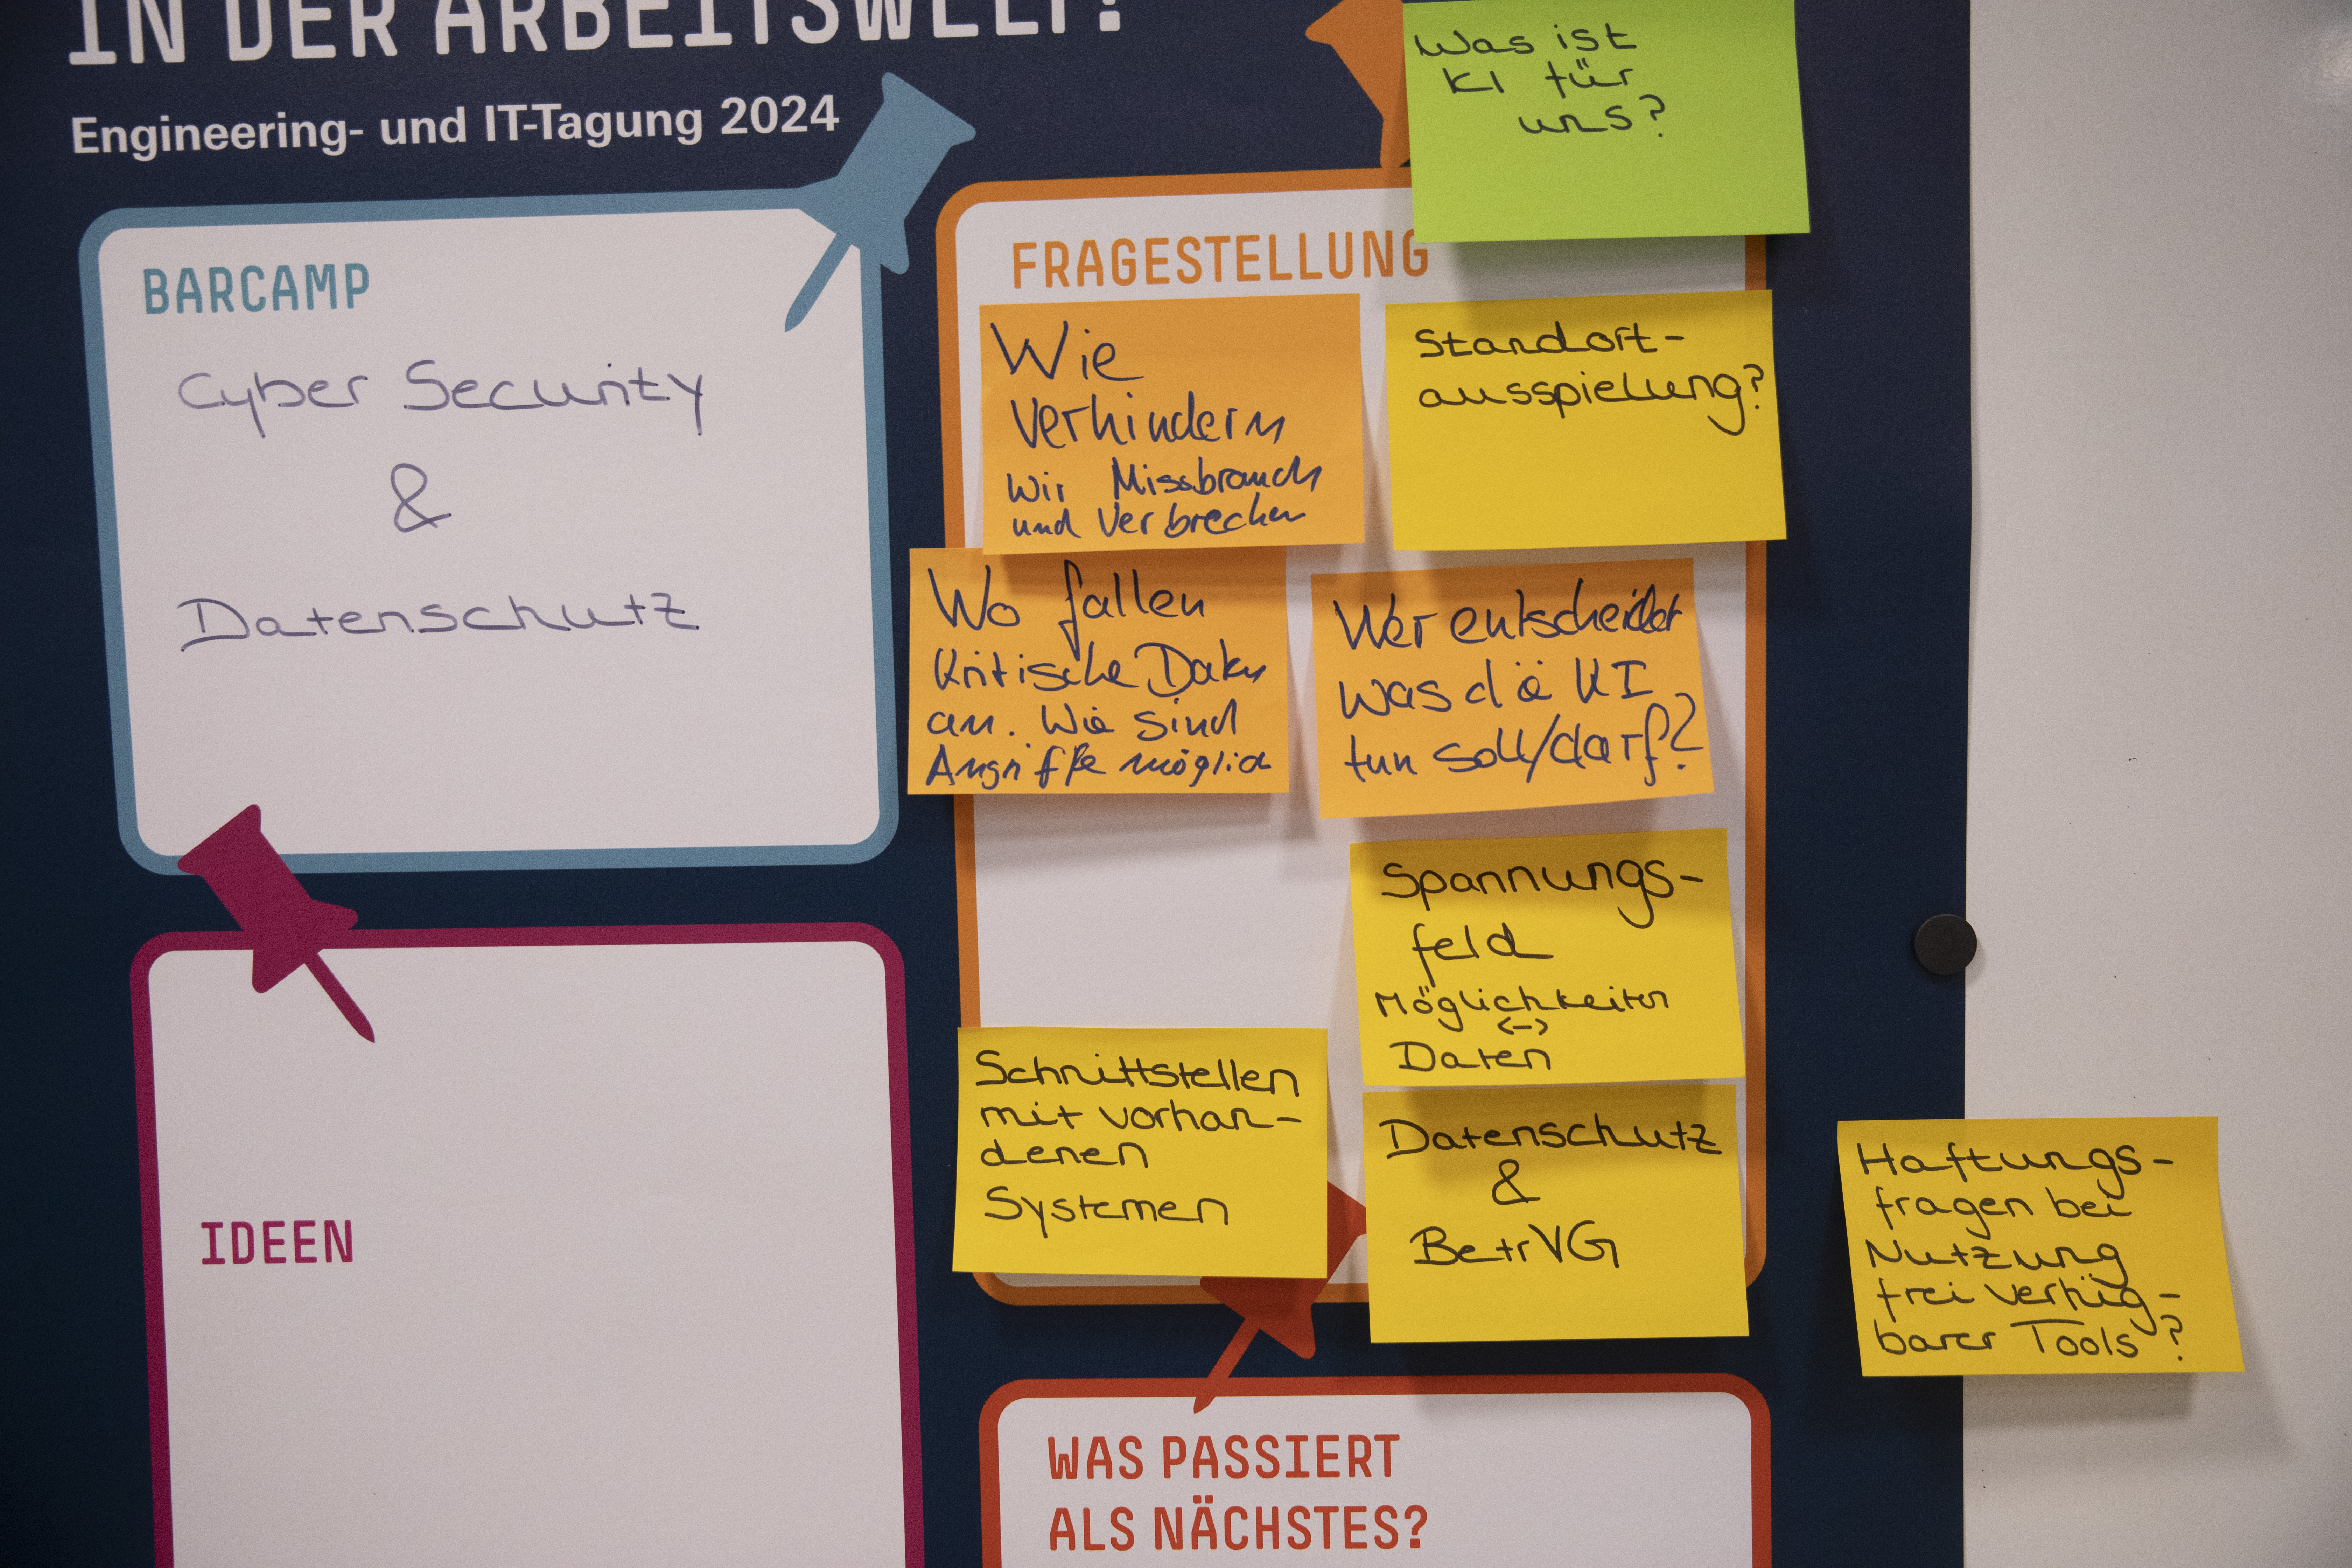 IN DER ARBEITSWELT?
Engineering- und IT-Tagung 2024
BARCAMP
Cyber Security
&
Datenschutz
IDEEN
FRAGESTELLUNG
Was ist
KI für
uns?
Wie
verhindern
wir Missbrauch
und Verbrechen
Standort-
ausspielung?
Wo fallen
Kritische Daten
an. Wie sind
Angriffe möglich
Wer entscheidet
was die KI
tun soll/darf?
Spannungs-
feld
Möglichkeiten
<->
Daten
Schnittstellen
mit vorhan-
denen
Systemen
Datenschutz
&
BetrVG
Haftungs-
fragen bei
Nutzung
frei verfüg-
barer Tools?
WAS PASSIERT
ALS NÄCHSTES?